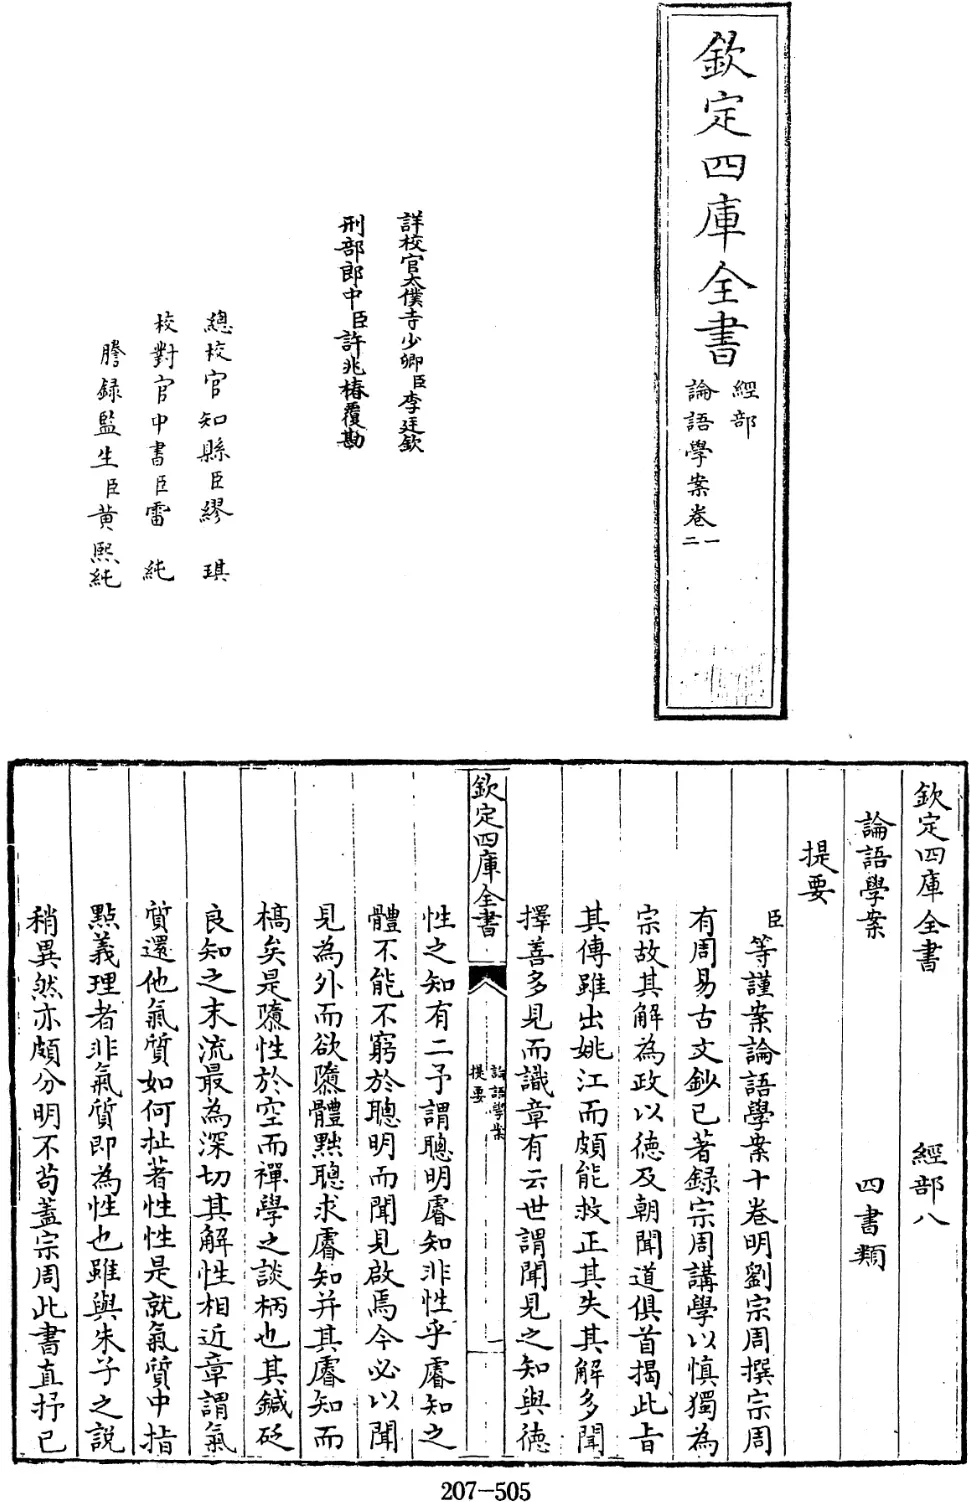 欽定四庫全書
經部
論語學案卷一
二
詳校官太僕寺少卿臣李廷欽
刑部郎中臣許兆椿覆勘
總校官知縣臣繆琪
校對官中書臣雷純
謄録監生臣黄熙純
欽定四庫全書 經部八
論語學案 四書類
提要
臣等謹案論語學案十卷明劉宗周撰宗周
有周易古文鈔已著錄宗周講學以慎獨為
宗故其解為政以德及朝聞道俱首揭此㫖
其傳雖出姚江而頗能救正其失其解多聞
擇善多見而識章有云世謂聞見之知與徳
欽定四庫全書
論語學案
提要
一
性之知有二予謂聰明睿知非性乎睿知之
體不能不窮於聰明而聞見啟焉今必以聞
見為外而欲隳體黜聰求睿知并其睿知而
槁矣是隳性於空而禪學之談柄也其鍼砭
良知之末流最為深切其解性相近章謂氣
質還他氣質如何扯著性性是就氣質中指
點義理者非氣質即為性也雖與朱子之說
稍異然亦頗分明不茍蓋宗周此書直抒已
207-505